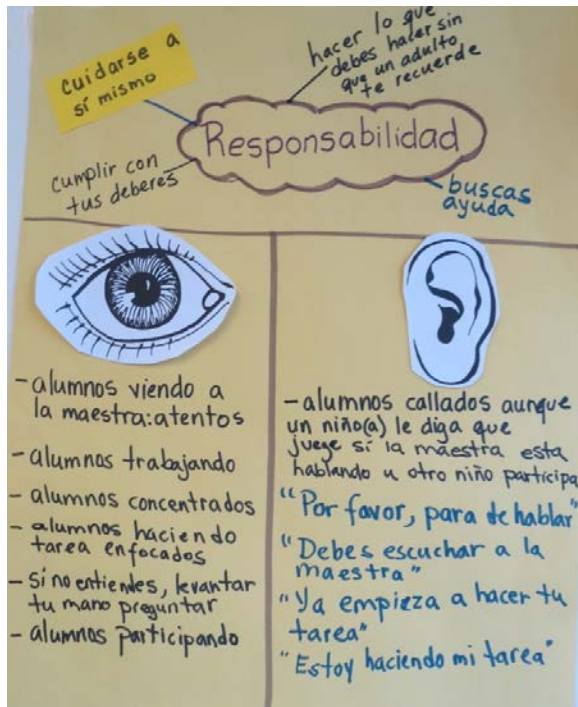 cuidarse a
sí mismo
hacer lo que
debes hacer sin
que un adulto
te recuerde
Responsabilidad
cumplir con
tus deberes
buscas
ayuda
-alumnos viendo a
la maestra:atentos
-alumnos trabajando
-alumnos concentrados
-alumnos haciendo
tarea enfocados
-si no entiendes, levantar
tu mano preguntar
-alumnos participando
-alumnos callados aunque
un niño(a) le diga que
juege si la maestra esta
hablando u otro niño participa
"Por favor, para de hablar"
"Debes escuchar a la
maestra"
"Ya empieza a hacer tu
tarea"
"Estoy haciendo mi tarea"